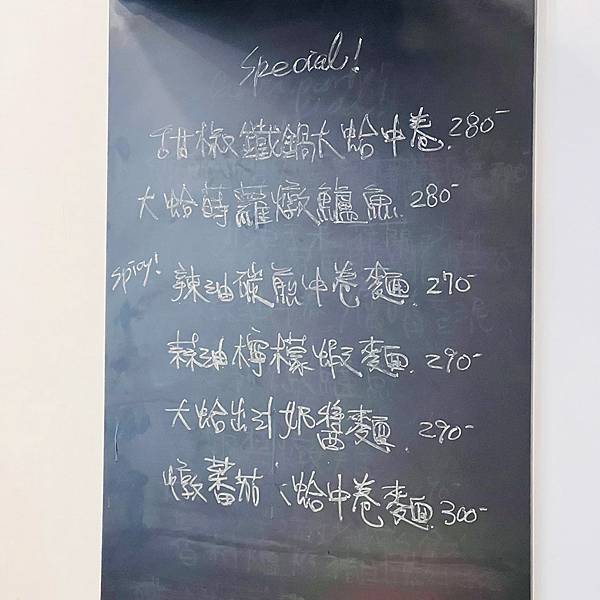 Special!
甜椒鐵鍋大蛤中卷. 280-
大蛤蒔蘿燉鱸魚. 280-
spicy! 辣油碳煎中卷麵. 270-
蒜油檸檬蝦麵. 290-
大蛤出汁奶醬麵. 290-
燉蕃茄、蛤中卷麵. 300-